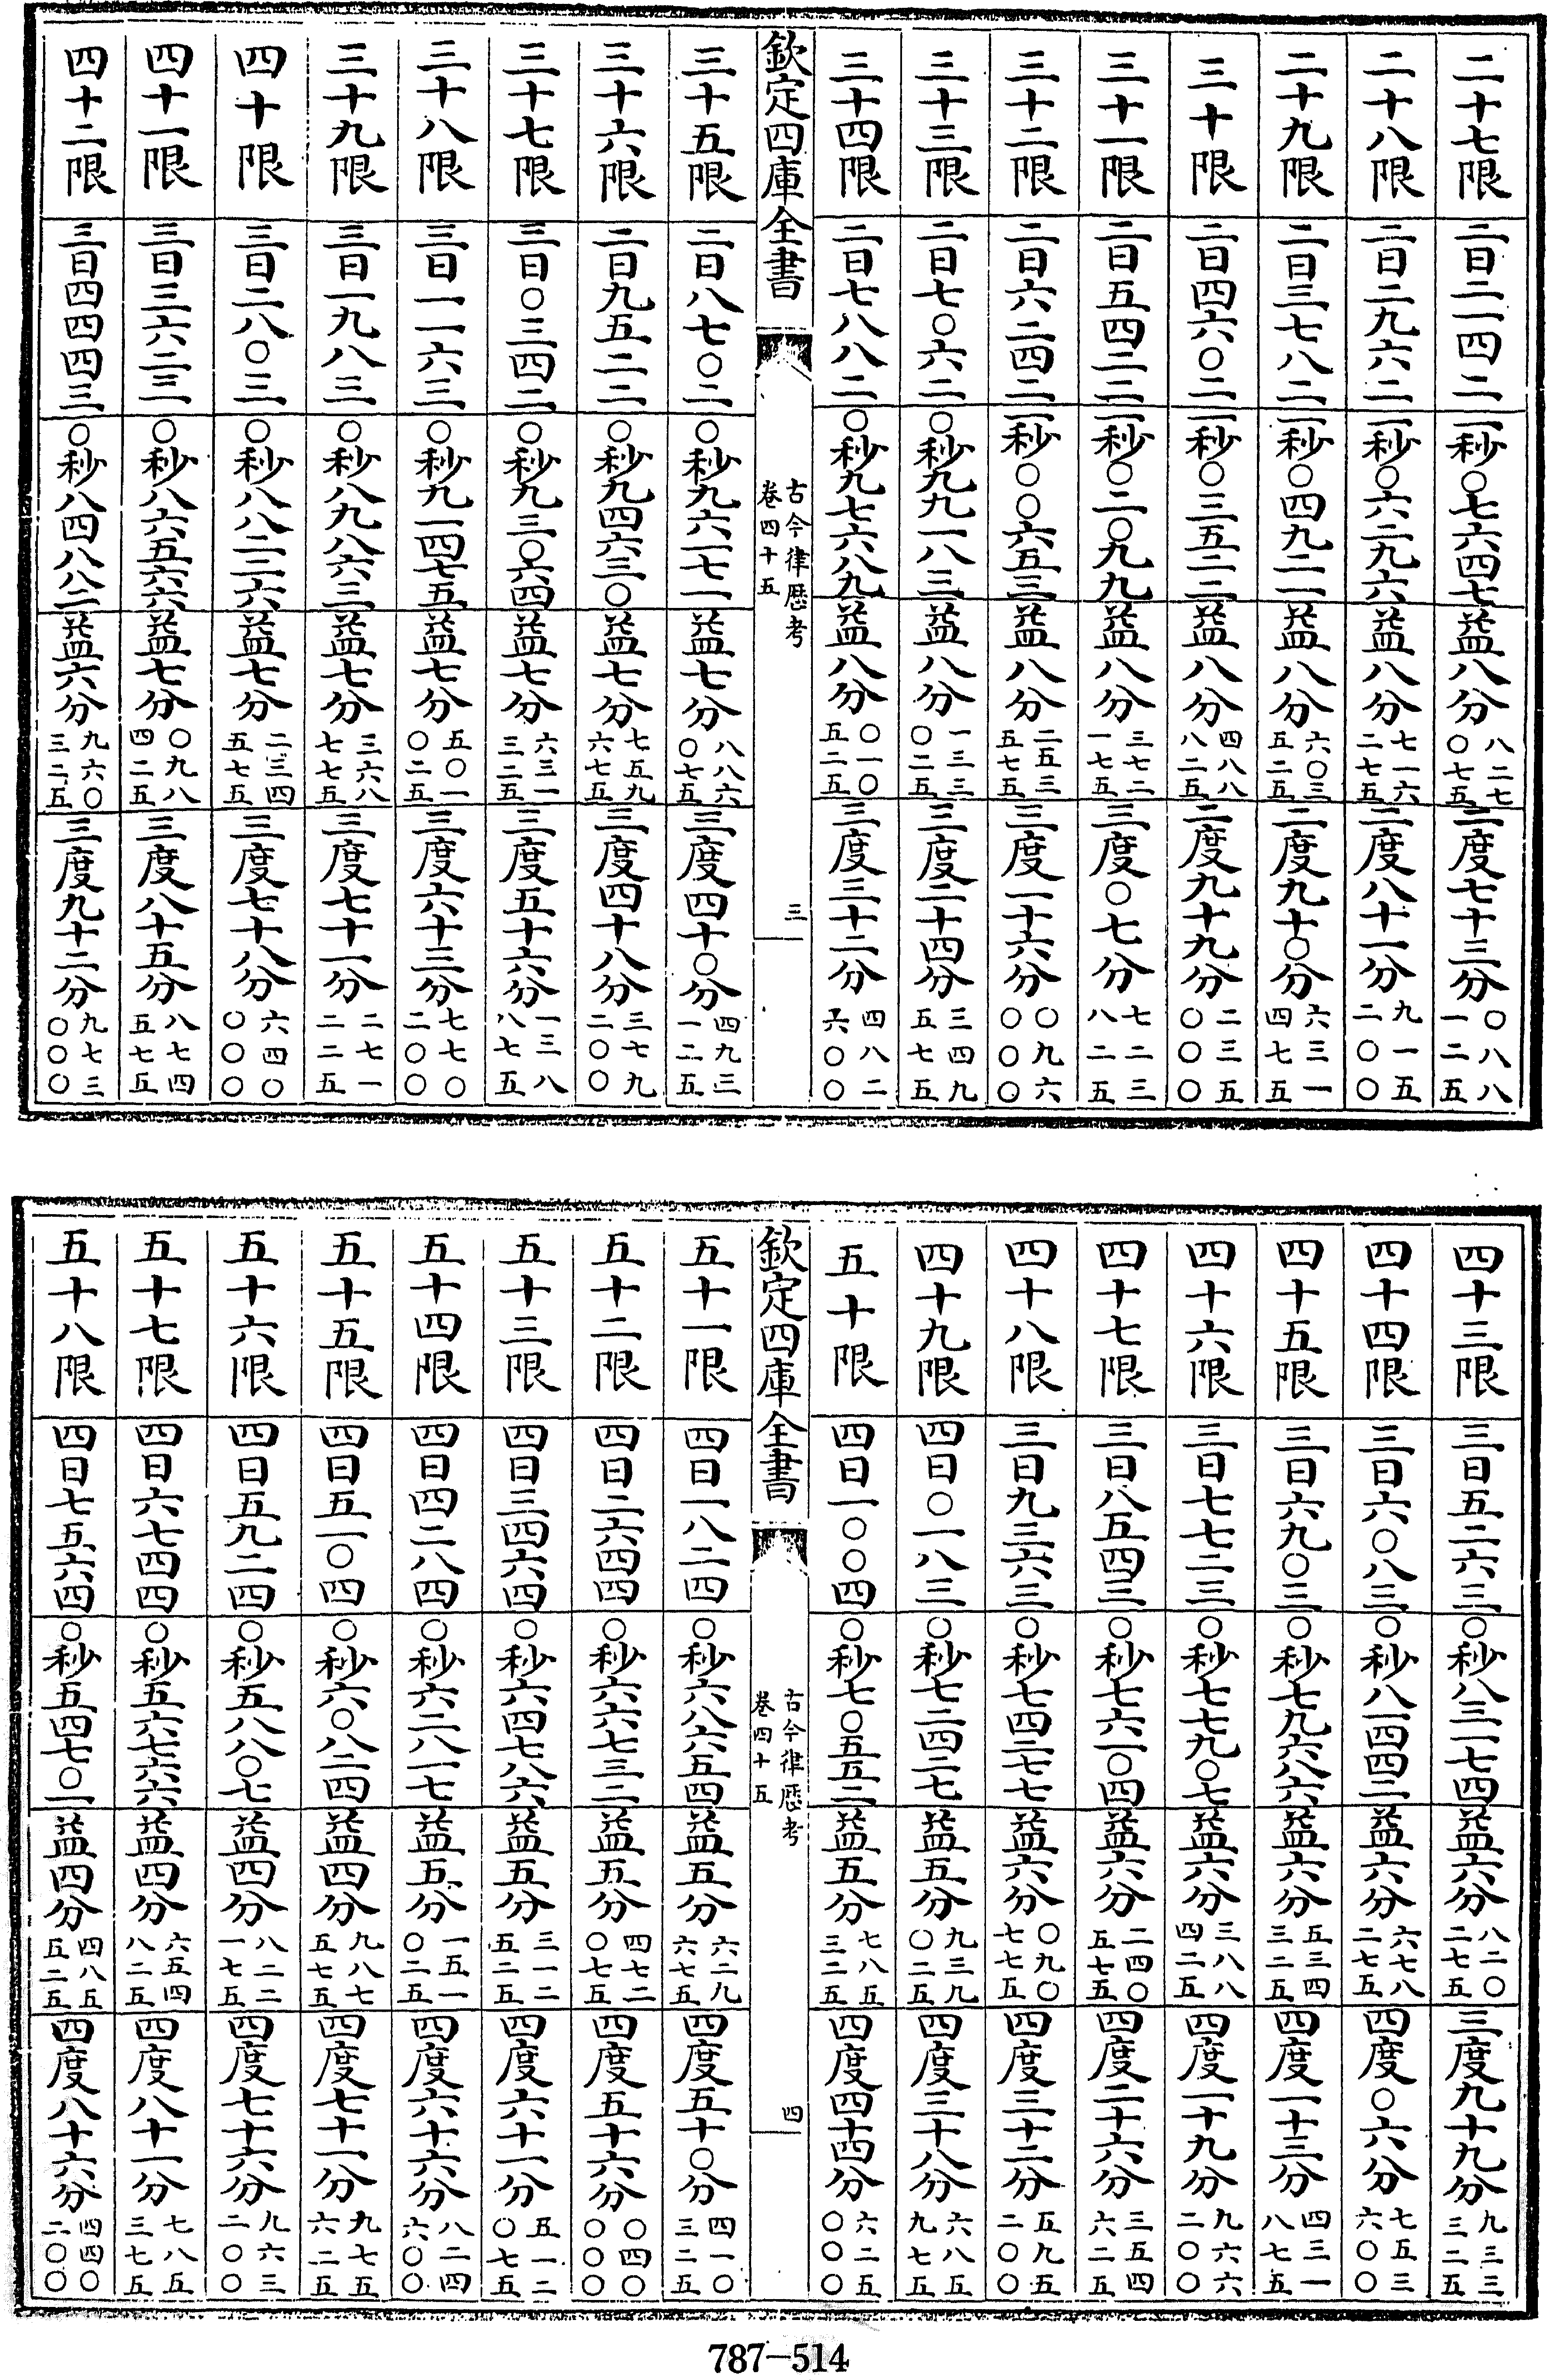 二十七限二日二一四二一秒〇七六四七益八分八二七〇七五二度七十三分〇八八一二五
二十八限二日二九六二一秒〇六二九六益八分七一六二七五二度八十一分九一五二〇〇
二十九限二日三七八二一秒〇四九二一益八分六〇三五二五二度九十〇分六三一四七五
三十限二日四六〇二一秒〇三五二二益八分四八八八二五二度九十九分二三五〇〇〇
三十一限二日五四二二一秒〇二〇九九益八分三七二一七五三度〇七分七二三八二五
三十二限二日六二四二一秒〇〇六五三益八分二五三五七五三度一十六分〇九六〇〇〇
三十三限二日七〇六二〇秒九九一八三益八分一三三〇二五三度二十四分三四九五七五
三十四限二日七八八二〇秒九七六八九益八分〇一〇五二五三度三十二分四八二六〇〇
欽定四庫全書
古今律厯考
卷四十五
三
三十五限二日八七〇二〇秒九六一七一益七分八八六〇七五三度四十〇分四九三一二五
三十六限二日九五二二〇秒九四六三〇益七分七五九六七五三度四十八分三七九二〇〇
三十七限三日〇三四二〇秒九三〇六四益七分六三一三二五三度五十六分一三八八七五
三十八限三日一一六三〇秒九一四七五益七分五〇一〇二五三度六十三分七七〇二〇〇
三十九限三日一九八三〇秒八九八六三益七分三六八七七五三度七十一分二七一二二五
四十限三日二八〇三〇秒八八二二六益七分二三四五七五三度七十八分六四〇〇〇〇
四十一限三日三六二三〇秒八六五六六益七分〇九八四二五三度八十五分八七四五七五
四十二限三日四四四三〇秒八四八八二益六分九六〇三二五三度九十二分九七三〇〇〇
四十三限三日五二六三〇秒八三一七四益六分八二〇二七五三度九十九分九三三三二五
四十四限三日六〇八三〇秒八一四四二益六分六七八二七五四度〇六分七五三六〇〇
四十五限三日六九〇三〇秒七九六八六益六分五三四三二五四度一十三分四三一八七五
四十六限三日七七二三〇秒七七九〇七益六分三八八四二五四度一十九分九六六二〇〇
四十七限三日八五四三〇秒七六一〇四益六分二四〇五七五四度二十六分三五四六二五
四十八限三日九三六三〇秒七四二七七益六分〇九〇七七五四度三十二分五九五二〇〇
四十九限四日〇一八三〇秒七二四二七益五分九三九〇二五四度三十八分六八五九七五
五十限四日一〇〇四〇秒七〇五五二益五分七八五三二五四度四十四分六二五〇〇〇
欽定四庫全書
古今律厯考
卷四十五
四
五十一限四日一八二四〇秒六八六五四益五分六二九六七五四度五十〇分四一〇三二五
五十二限四日二六四四〇秒六六七三二益五分四七二〇七五四度五十六分〇四〇〇〇〇
五十三限四日三四六四〇秒六四七八六益五分三一二五二五四度六十一分五一二〇七五
五十四限四日四二八四〇秒六二八一七益五分一五一〇二五四度六十六分八二四六〇〇
五十五限四日五一〇四〇秒六〇八二四益四分九八七五七五四度七十一分九七五六二五
五十六限四日五九二四〇秒五八八〇七益四分八二二一七五四度七十六分九六三二〇〇
五十七限四日六七四四〇秒五六七六六益四分六五四八二五四度八十一分七八五三七五
五十八限四日七五六四〇秒五四七〇一益四分四八五五二五四度八十六分四四〇二〇〇
787-514